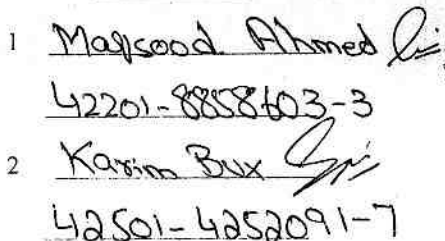 1 Maqsood Ahmed
42201-8858603-3
2 Karim Bux
42501-4252091-7